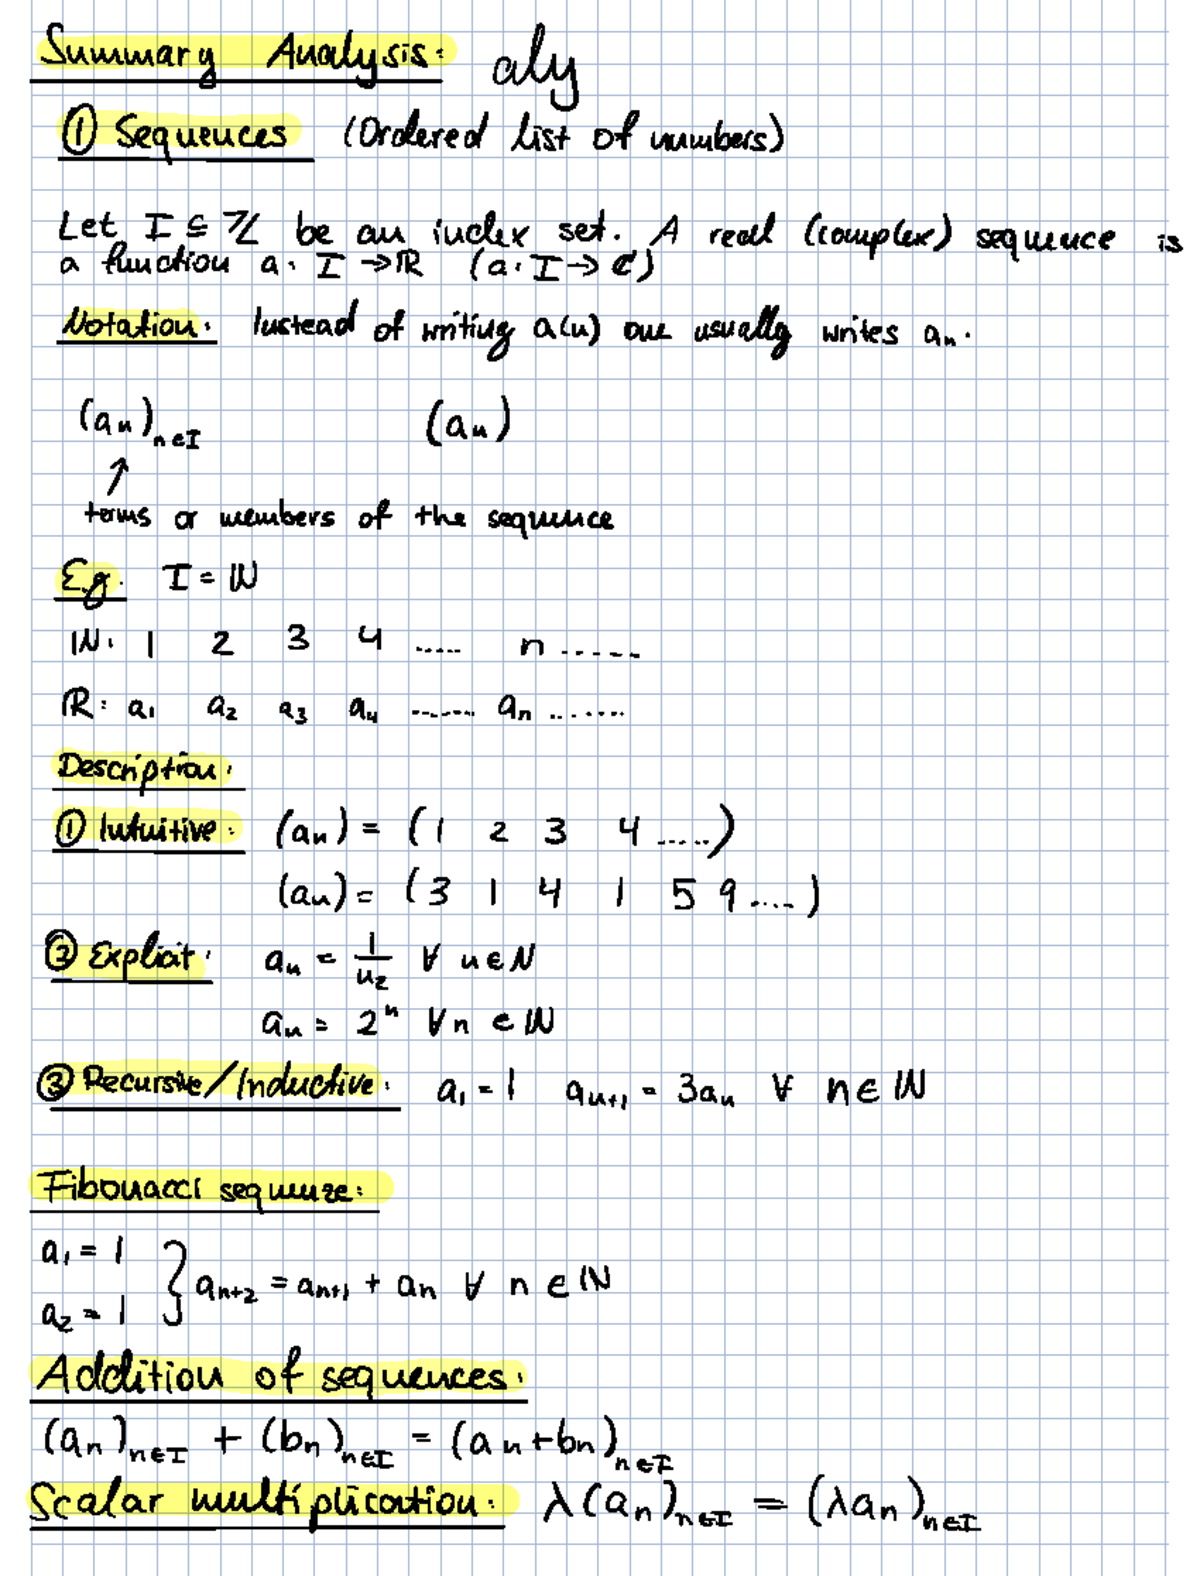 Summary Analysis: aly
① Sequences (Ordered list of numbers)
Let I ⊆ ℤ be an index set. A real (complex) sequence is
a function a: I → ℝ (a: I → ℂ)
Notation: Instead of writing a(n) one usually writes aₙ.
(aₙ)ₙ∈I (aₙ)
↑
terms or members of the sequence
E.g. I = ℕ
ℕ: 1 2 3 4 ..... n ......
ℝ: a₁ a₂ a₃ a₄ ....... aₙ .......
Description:
① Intuitive: (aₙ) = (1 2 3 4 .....)
(aₙ) = (3 1 4 1 5 9 .....)
② Explicit: aₙ = 1/n₂ ∀ n ∈ ℕ
aₙ = 2ⁿ ∀ n ∈ ℕ
③ Recursive/Inductive: a₁ = 1 aₙ₊₁ = 3aₙ ∀ n ∈ ℕ
Fibonacci sequenze:
a₁ = 1
} aₙ₊₂ = aₙ₊₁ + aₙ ∀ n ∈ ℕ
a₂ = 1
Addition of sequences:
(aₙ)ₙ∈I + (bₙ)ₙ∈I = (aₙ + bₙ)ₙ∈I
Scalar multiplication: λ(aₙ)ₙ∈I = (λaₙ)ₙ∈I